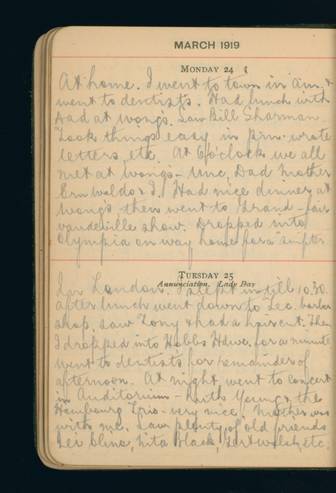 MARCH 1919
MONDAY 24
At home. I went to town in a.m. &
went to dentists. Had lunch with
Dad at Wongs. Saw Bill Sharman.
Took things easy in p.m. wrote
letters, etc. At 6 o'clock we all
met at Wong's - Unc, Dad Mother
Ern Waldo & I. Had nice dinner at
Wong's then went to Grand - fair
vaudeville show. Dropped into
Olympia on way home for a
TUESDAY 25
Annunciation. Lady Day
In London. I till 10.30.
After lunch went down to Tec. barber
shop, saw Tony & had a haircut. Then
I dropped into Hobbs Hdwe. for a minute
went to dentists for remainder of
afternoon. At night went to concert
in Auditorium - Keith Young & the
Hambourg Trio - very nice. Mother was
with me. Saw plenty of old friends
Cline, Nita Black, Gert Welsh, etc.